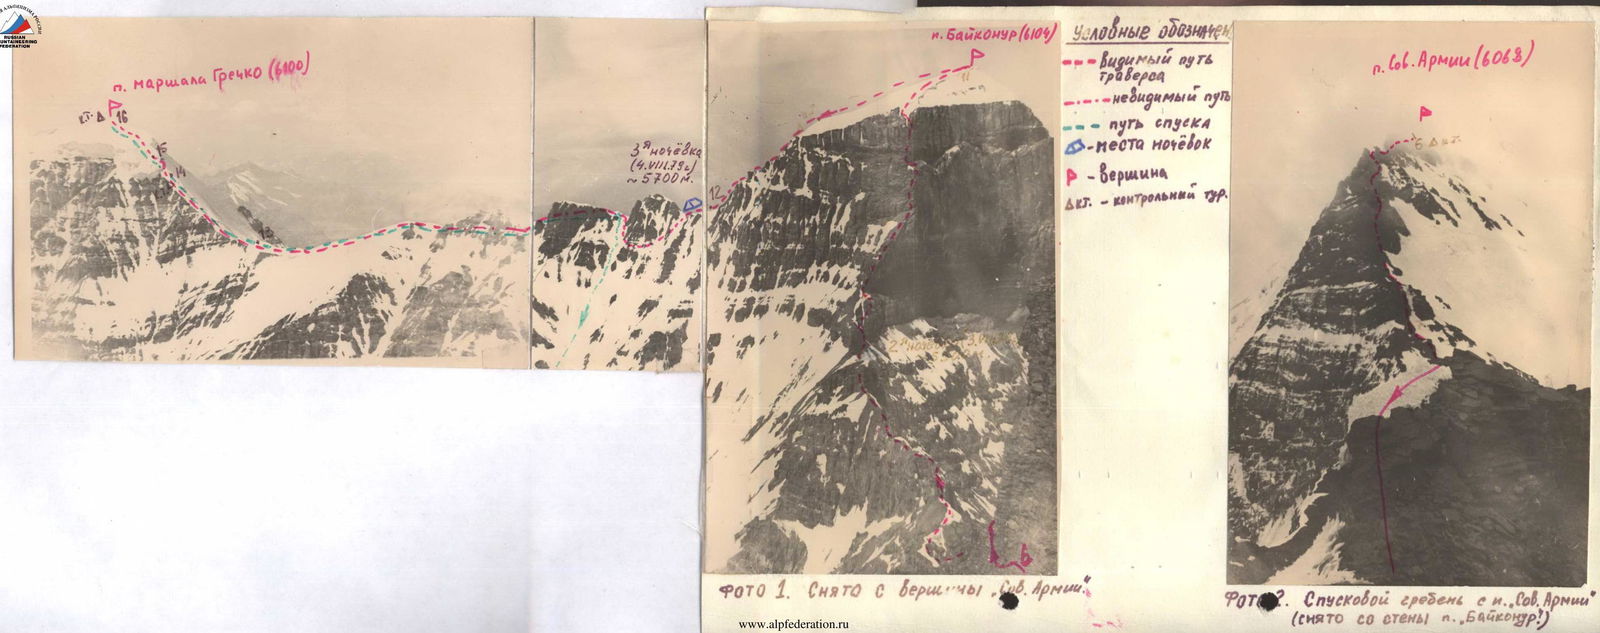 RUSSIAN
MOUNTAINEERING
FEDERATION
п. маршала Гречко (6100)
кт. Δ 16
14
13
3я ночёвка
(4.VIII.79г)
~ 5700 м.
12
п. Байконур (6104)
11
2я ночёвка 3.VIII
Условные обозначен
- видимый путь
траверса
- невидимый путь
- путь спуска
- места ночёвок
- вершина
Δкт. - контрольный тур.
п. Сов. Армии (6068)
6 Δ кт.
Фото 1. Снято с вершины „Сов. Армии"
Фото 2. Спусковой гребень с п. „Сов. Армии"
(снято со стены п. „Байконур")
www.alpfederation.ru